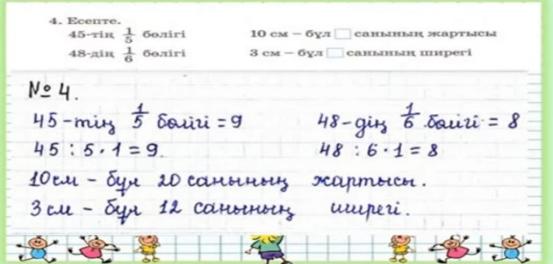 4. Есепте.
45-тің 1/5 бөлігі 10 см – бұл □ санының жартысы
48-дің 1/6 бөлігі 3 см – бұл □ санының ширегі
№ 4.
45-тің 1/5 бөлігі = 9 48-дің 1/6 бөлігі = 8
45 : 5 · 1 = 9 48 : 6 · 1 = 8
10 см – бұл 20 санының жартысы.
3 см – бұл 12 санының ширегі.